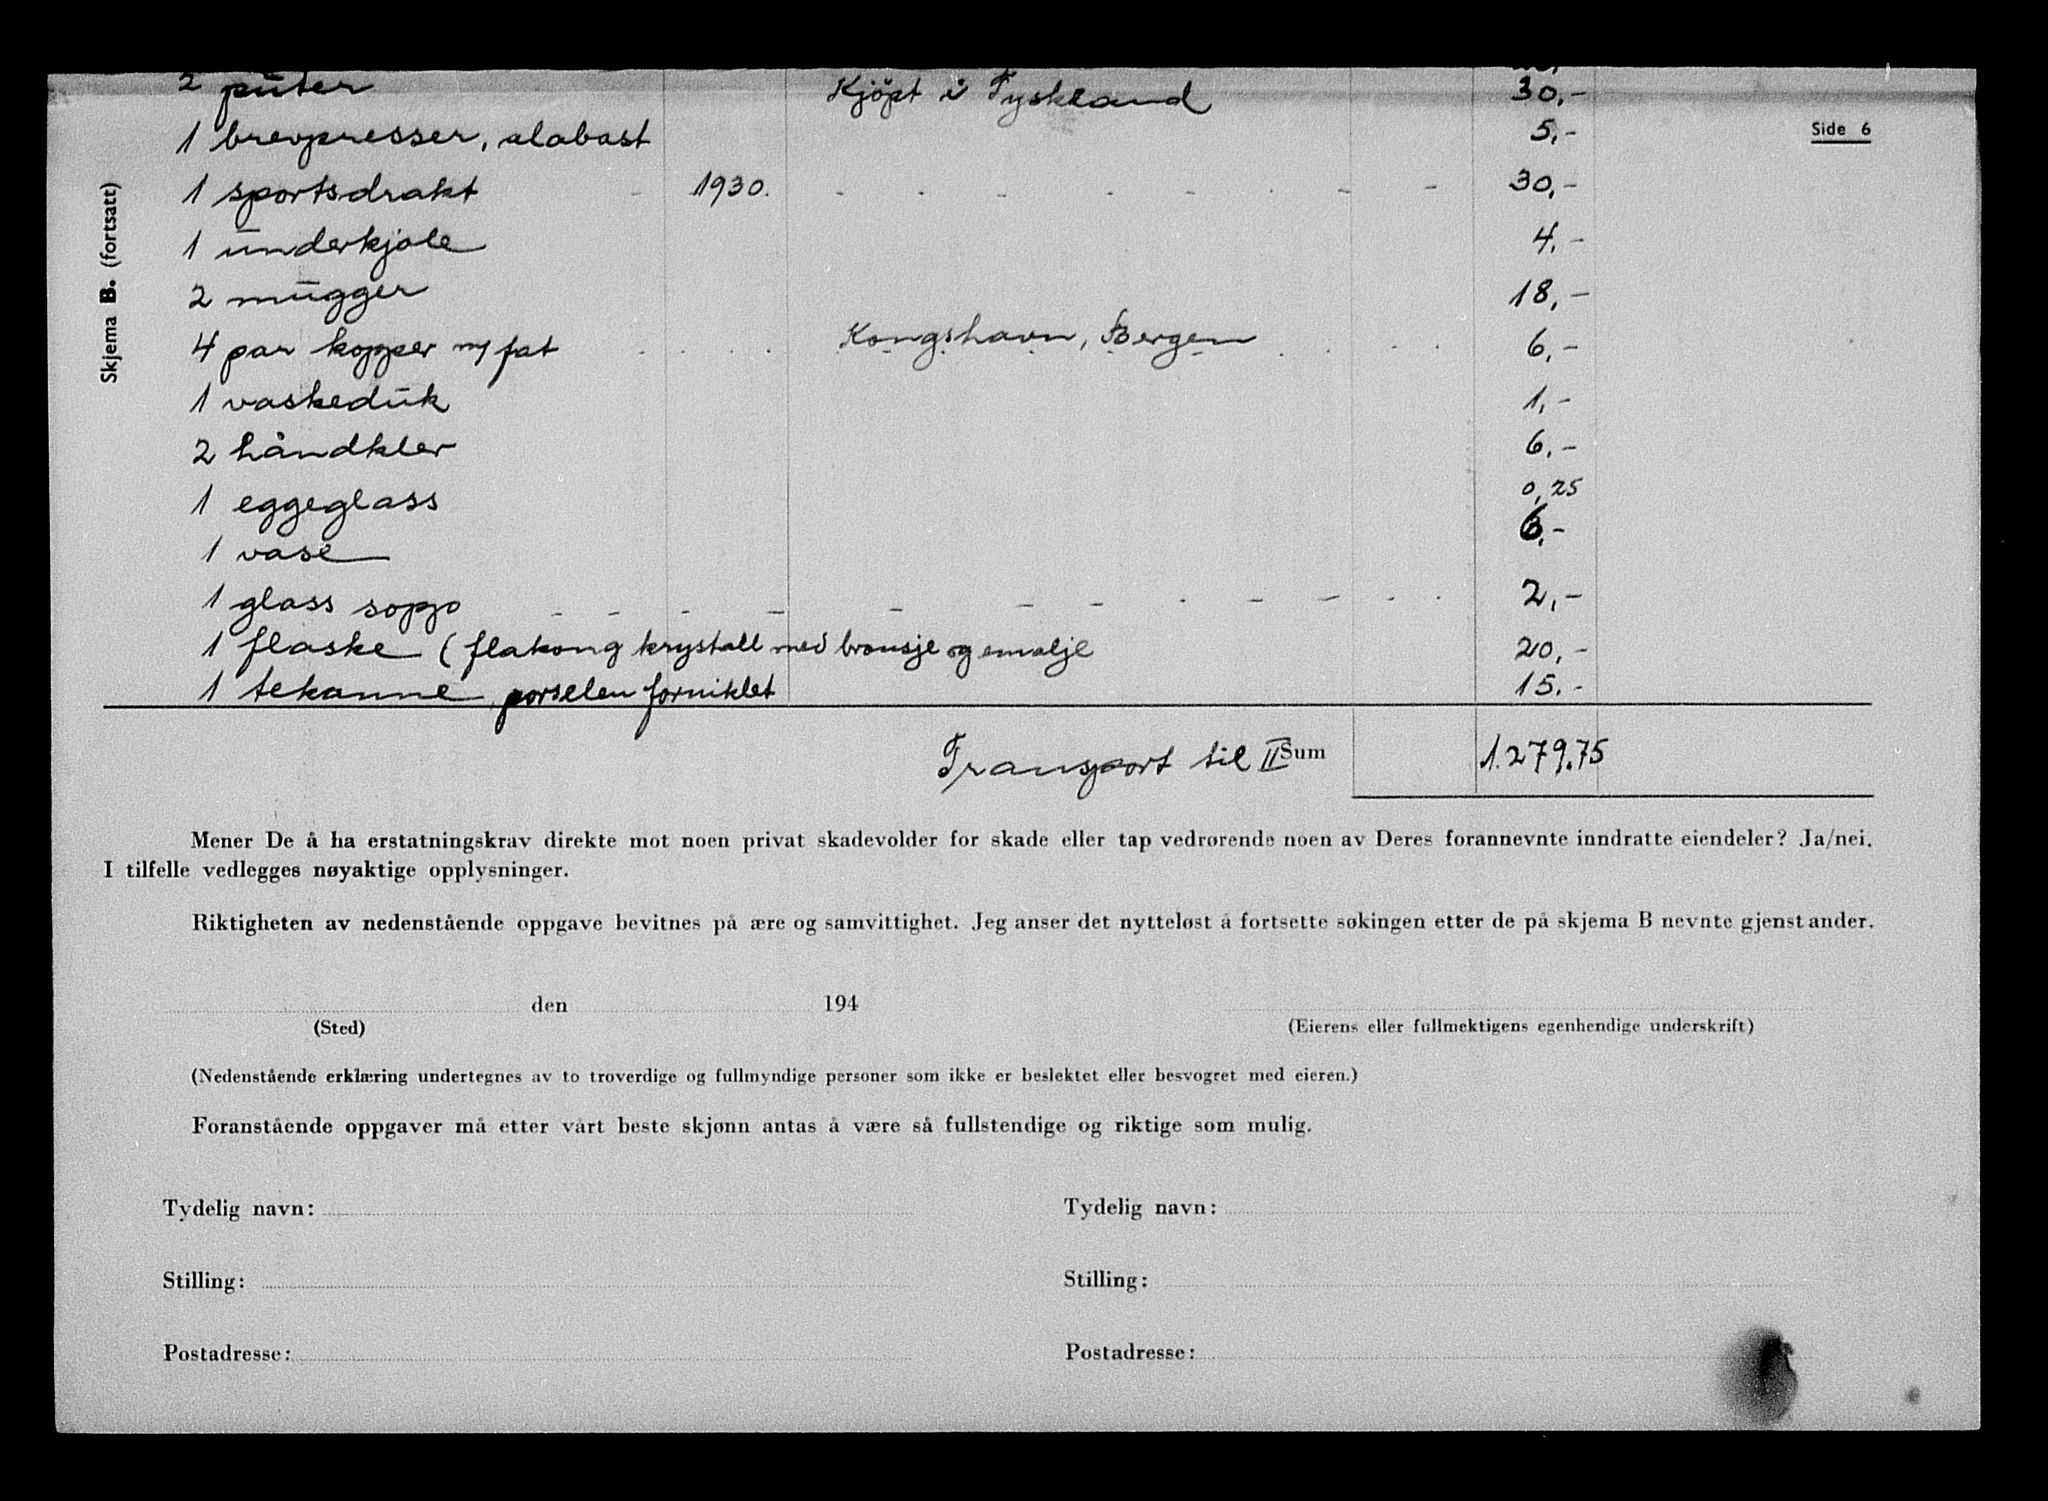 2 puter Kjöpt i Tyskland 30,-
1 brevpresser, alabast 5,-
Side 6
1 sportsdrakt - 1930. - - - - - - - 30,-
1 underkjole 4,-
2 mugger 18,-
4 par kopper m/ fat . . . Kongshavn, Bergen . . . . 6,-
1 vaskeduk 1,-
2 håndkler 6,-
1 eggeglass 0,25
1 vase 6,-
1 glass sopp - - - - - - - - - - - - 2,-
1 flaske (flakong krystall med bronsje og emalje 20,-
1 tekanne, porselen forniklet 15.-
Skjema B. (fortsatt)
Transport til II Sum 1.279.75
Mener De å ha erstatningskrav direkte mot noen privat skadevolder for skade eller tap vedrørende noen av Deres forannevnte inndratte eiendeler? Ja/nei.
I tilfelle vedlegges nøyaktige opplysninger.
Riktigheten av nedenstående oppgave bevitnes på ære og samvittighet. Jeg anser det nytteløst å fortsette søkingen etter de på skjema B nevnte gjenstander.
den 194
(Sted) (Eierens eller fullmektigens egenhendige underskrift)
(Nedenstående erklæring undertegnes av to troverdige og fullmyndige personer som ikke er beslektet eller besvogret med eieren.)
Foranstående oppgaver må etter vårt beste skjønn antas å være så fullstendige og riktige som mulig.
Tydelig navn: Tydelig navn:
Stilling: Stilling:
Postadresse: Postadresse: